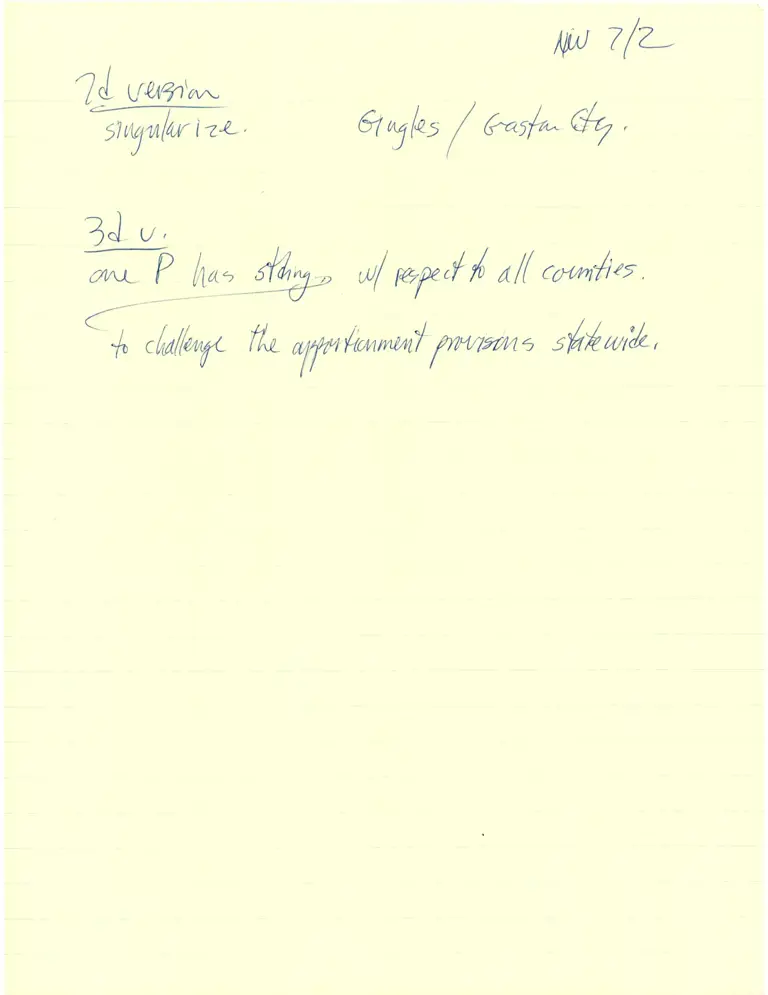 7/2
2d version
singularize. Gingles / Gaston Cty.
3d v.
one P has stding w/ respect to all counties.
to challenge the apportionment provisions statewide.